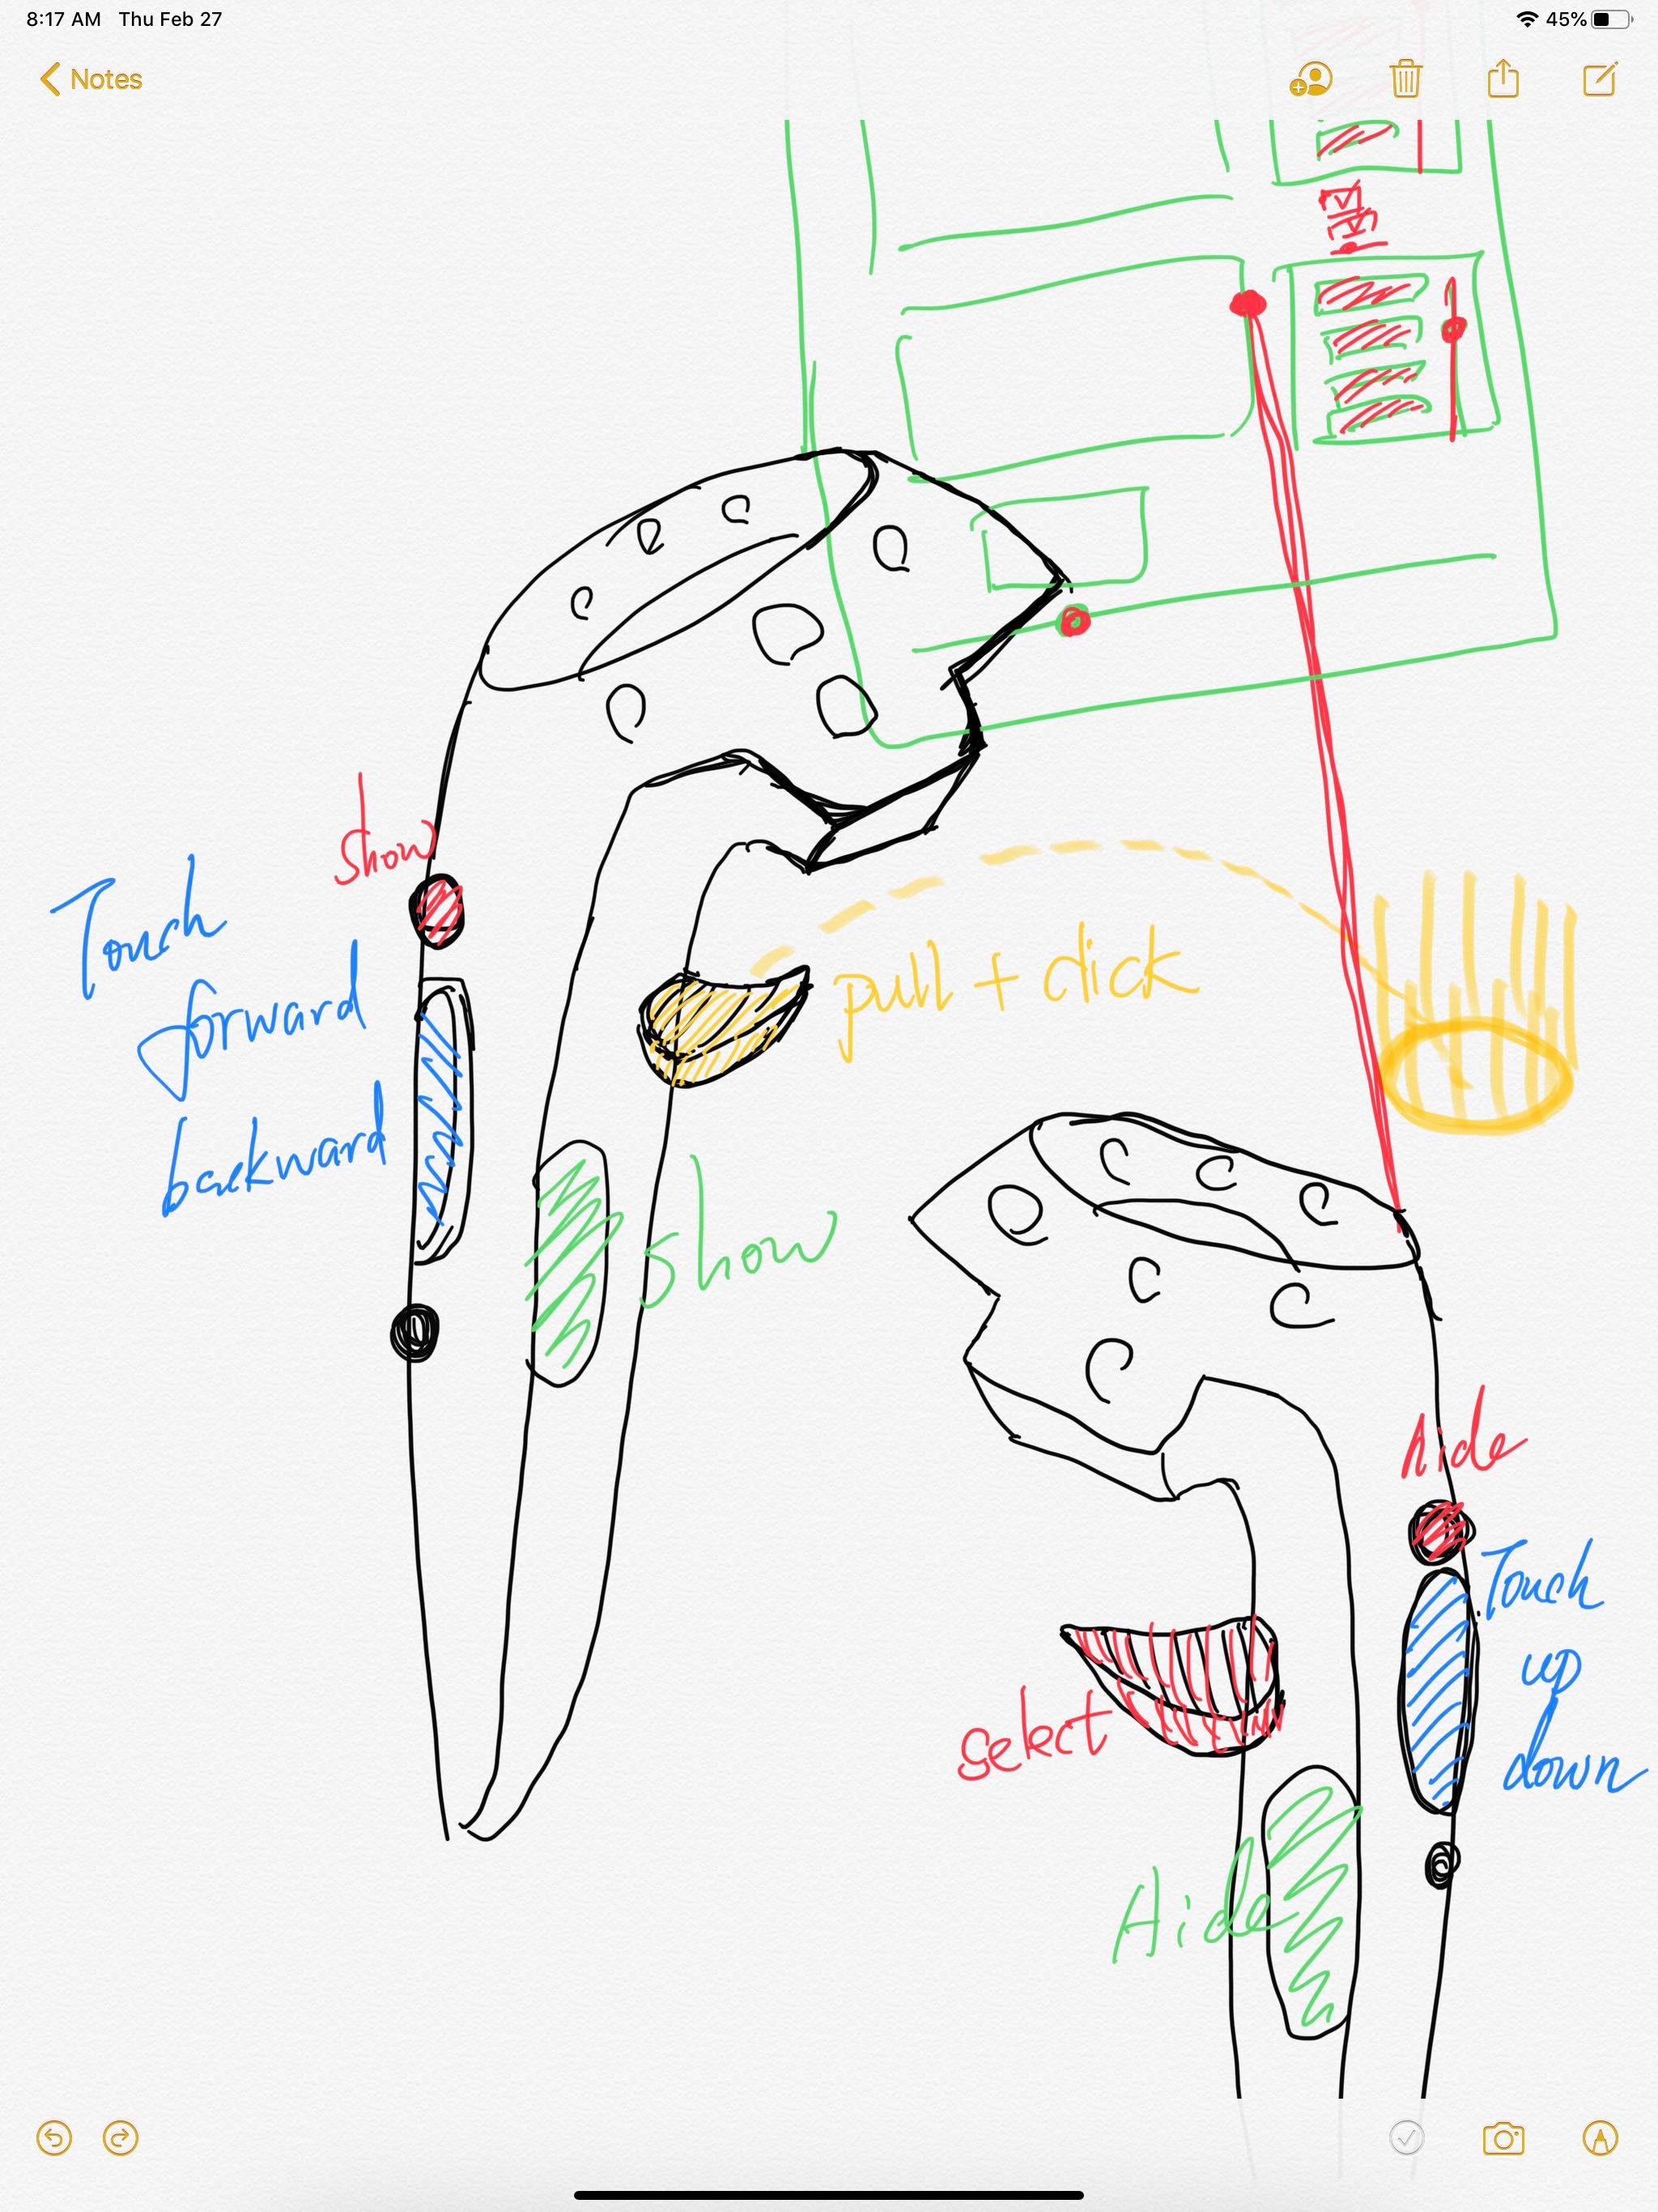 8:17 AM Thu Feb 27
45%
Notes
show
Touch
forward
backward
pull + click
show
hide
Touch
up
down
select
Hide